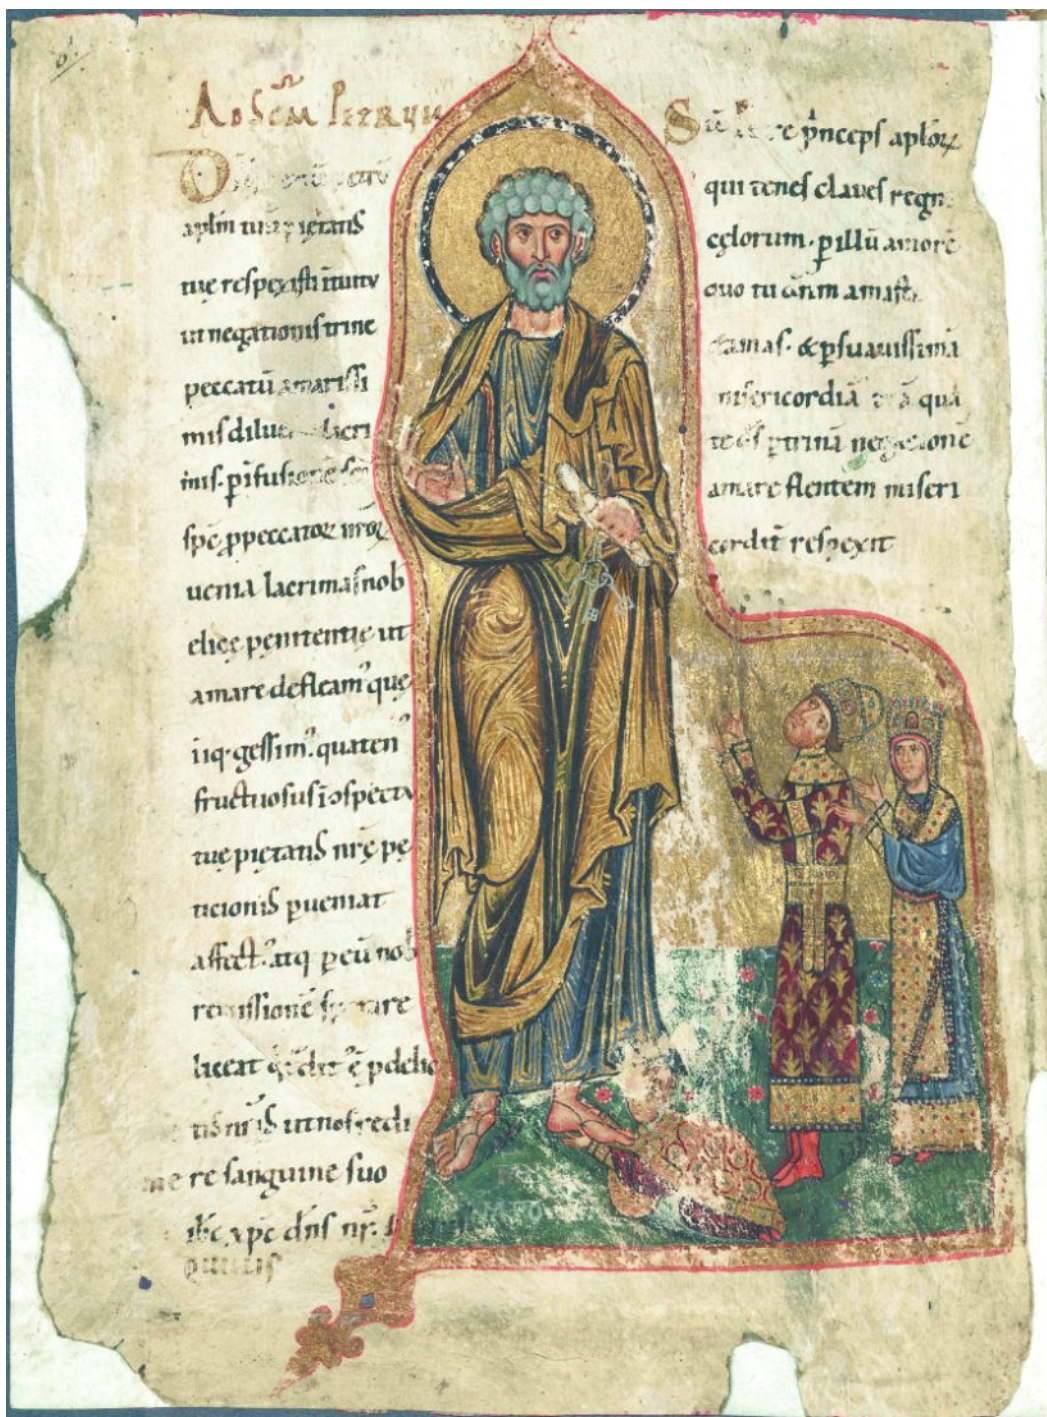 Ad scm Petrum
aplm tuū pietatis
tue respexisti ītuitu
ut negationis trine
peccatū amarissi
mis dilueret lacri
mis. p̄ īfusionē sci
sps̄ p̱ peccatoꝝ nr̄oꝝ
uenia lacrimas nob
elice penitentie ut
amare defleam᷒ que
iiq· gessim᷒. quaten᷒
fructuosus ī ↄspectu
tue pietatis nr̄e pe
ticionis ꝑueniat
affect᷒. atq ꝑ eū nob
remissionē sperare
liceat ꝑ delic
tis nr̄is ut nos redi
mere sanguine suo
ihc xp̄c dn̄s nr̄.
Qui uiuis
Sce petre pͥnceps aploꝝ
qui tenes claues regni
celorum. ꝑ illū amorē
quo tu dn̄m amasti
& amas. & ꝑ suauissimā
misericordiā suā qua
te ds̄ ꝑ trinā negacionē
amare flentem miseri
corditͬ respexit